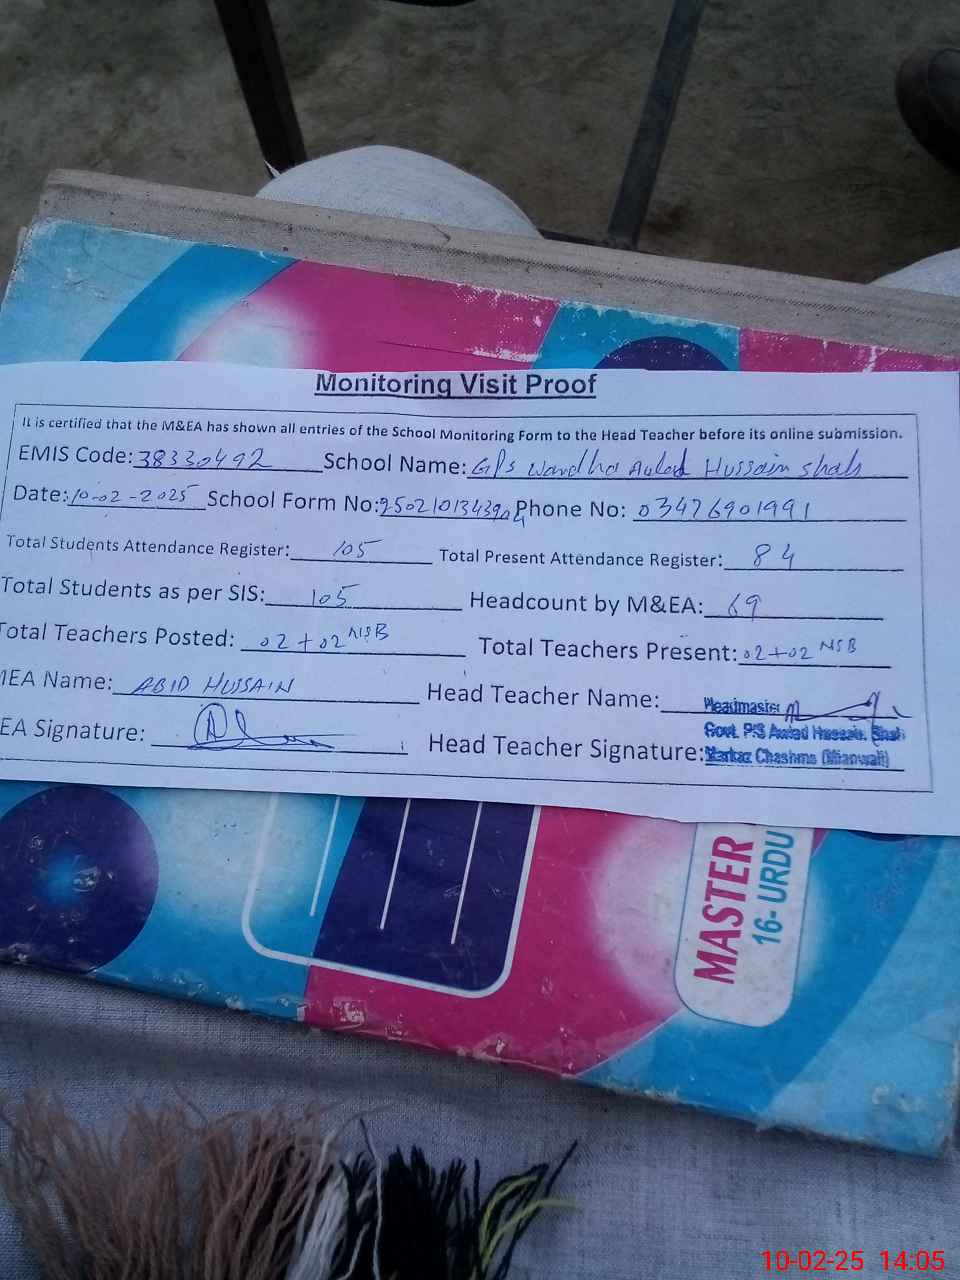 Monitoring Visit Proof
It is certified that the M&EA has shown all entries of the School Monitoring Form to the Head Teacher before its online submission.
EMIS Code: 38330492 School Name: GPS Wandha Aulad Hussain Shah
Date: 10-02-2025 School Form No: 250210134390 Phone No: 03476901991
Total Students Attendance Register: 105 Total Present Attendance Register: 84
Total Students as per SIS: 105 Headcount by M&EA: 69
Total Teachers Posted: 02+02 NSB Total Teachers Present: 02+02 NSB
MEA Name: ABID HUSSAIN Head Teacher Name: Headmaster
EA Signature: Govt. P/S Awlad Hussain Shah
Head Teacher Signature: Markaz Chashma (Mianwali)
MASTER
16- URDU
10-02-25 14:05